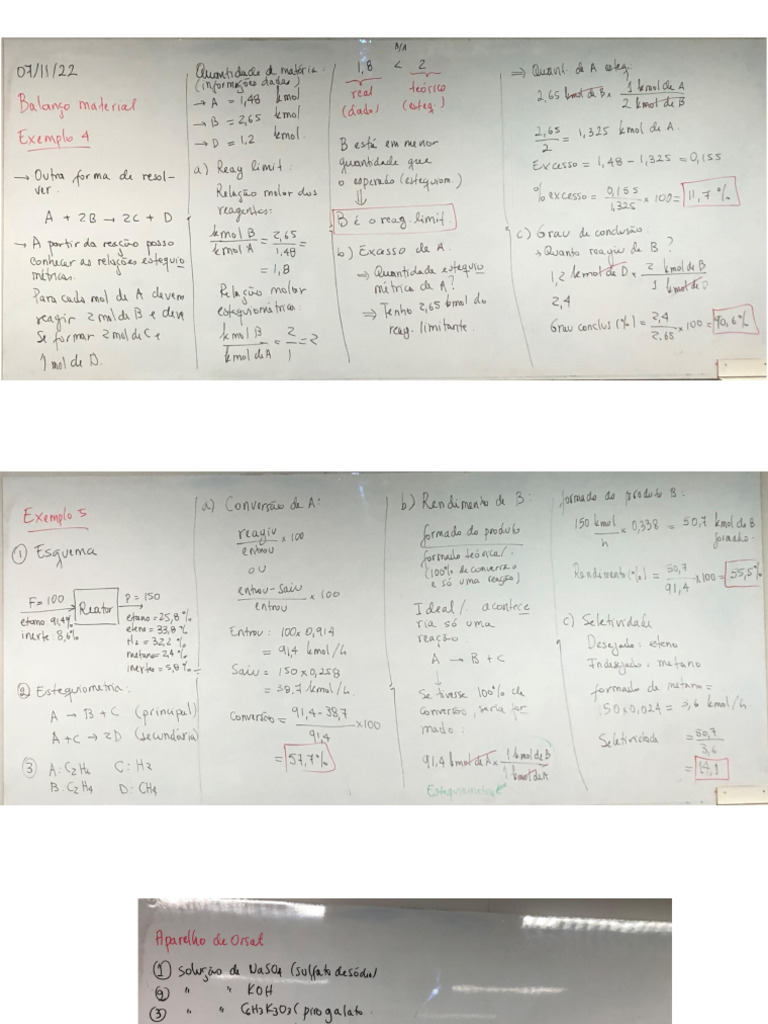 07/11/22
Balanço material
Exemplo 4
→ Outra forma de resol-
ver.
A + 2B → 2C + D
→ A partir da reação posso
conhecer as relações estequio
métricas.
Para cada mol de A devem
reagir 2 mol de B e deve
se formar 2 mol de C e
1 mol de D.
Quantidade de matéria:
(informações dadas)
→ A = 1,48 kmol
→ B = 2,65 kmol
→ D = 1,2 kmol.
a) Reag limit:
Relação molar dos
reagentes:
kmol B / kmol A = 2,65 / 1,48 =
= 1,8
Relação molar
estequiométrica:
kmol B / kmol de A = 2 / 1 = 2
B/A
1,8 < 2
real teórico
(dado) (esteq.)
B está em menor
quantidade que
o esperado (estequiom.)
⇓
B é o reag. limit.
b) Excesso de A.
⇒ Quantidade estequio
métrica de A?
⇒ Tenho 2,65 kmol do
reag. limitante.
⇒ Quant. de A esteq:
2,65 kmol de B × 1 kmol de A / 2 kmol de B
2,65 / 2 = 1,325 kmol de A.
Excesso = 1,48 - 1,325 = 0,155
% excesso = 0,155 / 1,325 × 100 = 11,7 %
c) Grau de conclusão.
→ Quanto reagiu de B ?
1,2 kmol de D × 2 kmol de B / 1 kmol de D
2,4
Grau conclus (%) = 2,4 / 2,65 × 100 = 90,6 %
Exemplo 5
① Esquema
F = 100 Reator P = 150
etano 91,4%
inerte: 8,6%
etano = 25,8 %
eteno = 33,8 %
H2 = 32,2 %
metano = 2,4 %
inertes = 5,8 %
② Estequiometria:
A → B + C (principal)
A + C → 2D (secundária)
③ A: C2H6 C: H2
B: C2H4 D: CH4
a) Conversão de A:
reagiu / entrou × 100
ou
entrou - saiu / entrou × 100
Entrou: 100 × 0,914
= 91,4 kmol/h
Saiu = 150 × 0,258
= 38,7 kmol/h.
Conversão = 91,4 - 38,7 / 91,4 × 100
= 57,7%
b) Rendimento de B:
formado do produto
formado teórica/
(100% de conversão
e só uma reação)
Ideal/ acontece
ria só uma
reação:
A → B + C
↓
Se tivesse 100% de
conversão, seria for
mado:
91,4 kmol de A × 1 kmol de B / 1 kmol de A
formado do produto B:
150 kmol / h × 0,338 = 50,7 kmol de B
formado.
Rendimento (%) = 50,7 / 91,4 × 100 = 55,5%
c) Seletividade
Desejado: eteno
Indesejado: metano
formado de metano =
150 × 0,024 = 3,6 kmol/h.
Seletividade = 50,7 / 3,6
= 14,1
Aparelho de Orsat
① Solução de NaSO4 (sulfato de sódio)
② " " KOH
③ " " C6H3K3O3 (pirogalato